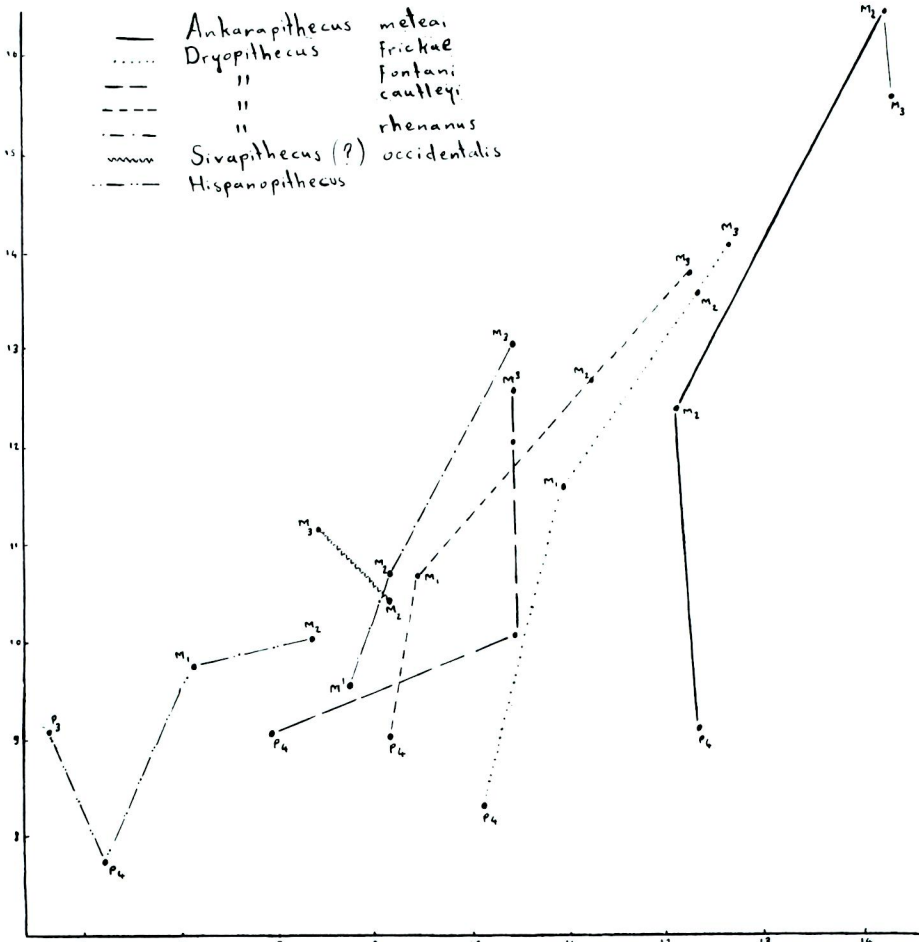 Ankarapithecus meteai
Dryopithecus Frickae
" Fontani
" cautleyi
" rhenanus
Sivapithecus (?) occidentalis
Hispanopithecus
M2
M3
16
15
14
13
12
11
10
9
8
M3
M3
M2
M3
M3
M2
M2
M1
M3
M2
M1
M2
M2
M1
M1
P3
P4
P4
P4
P4
P4
13
14